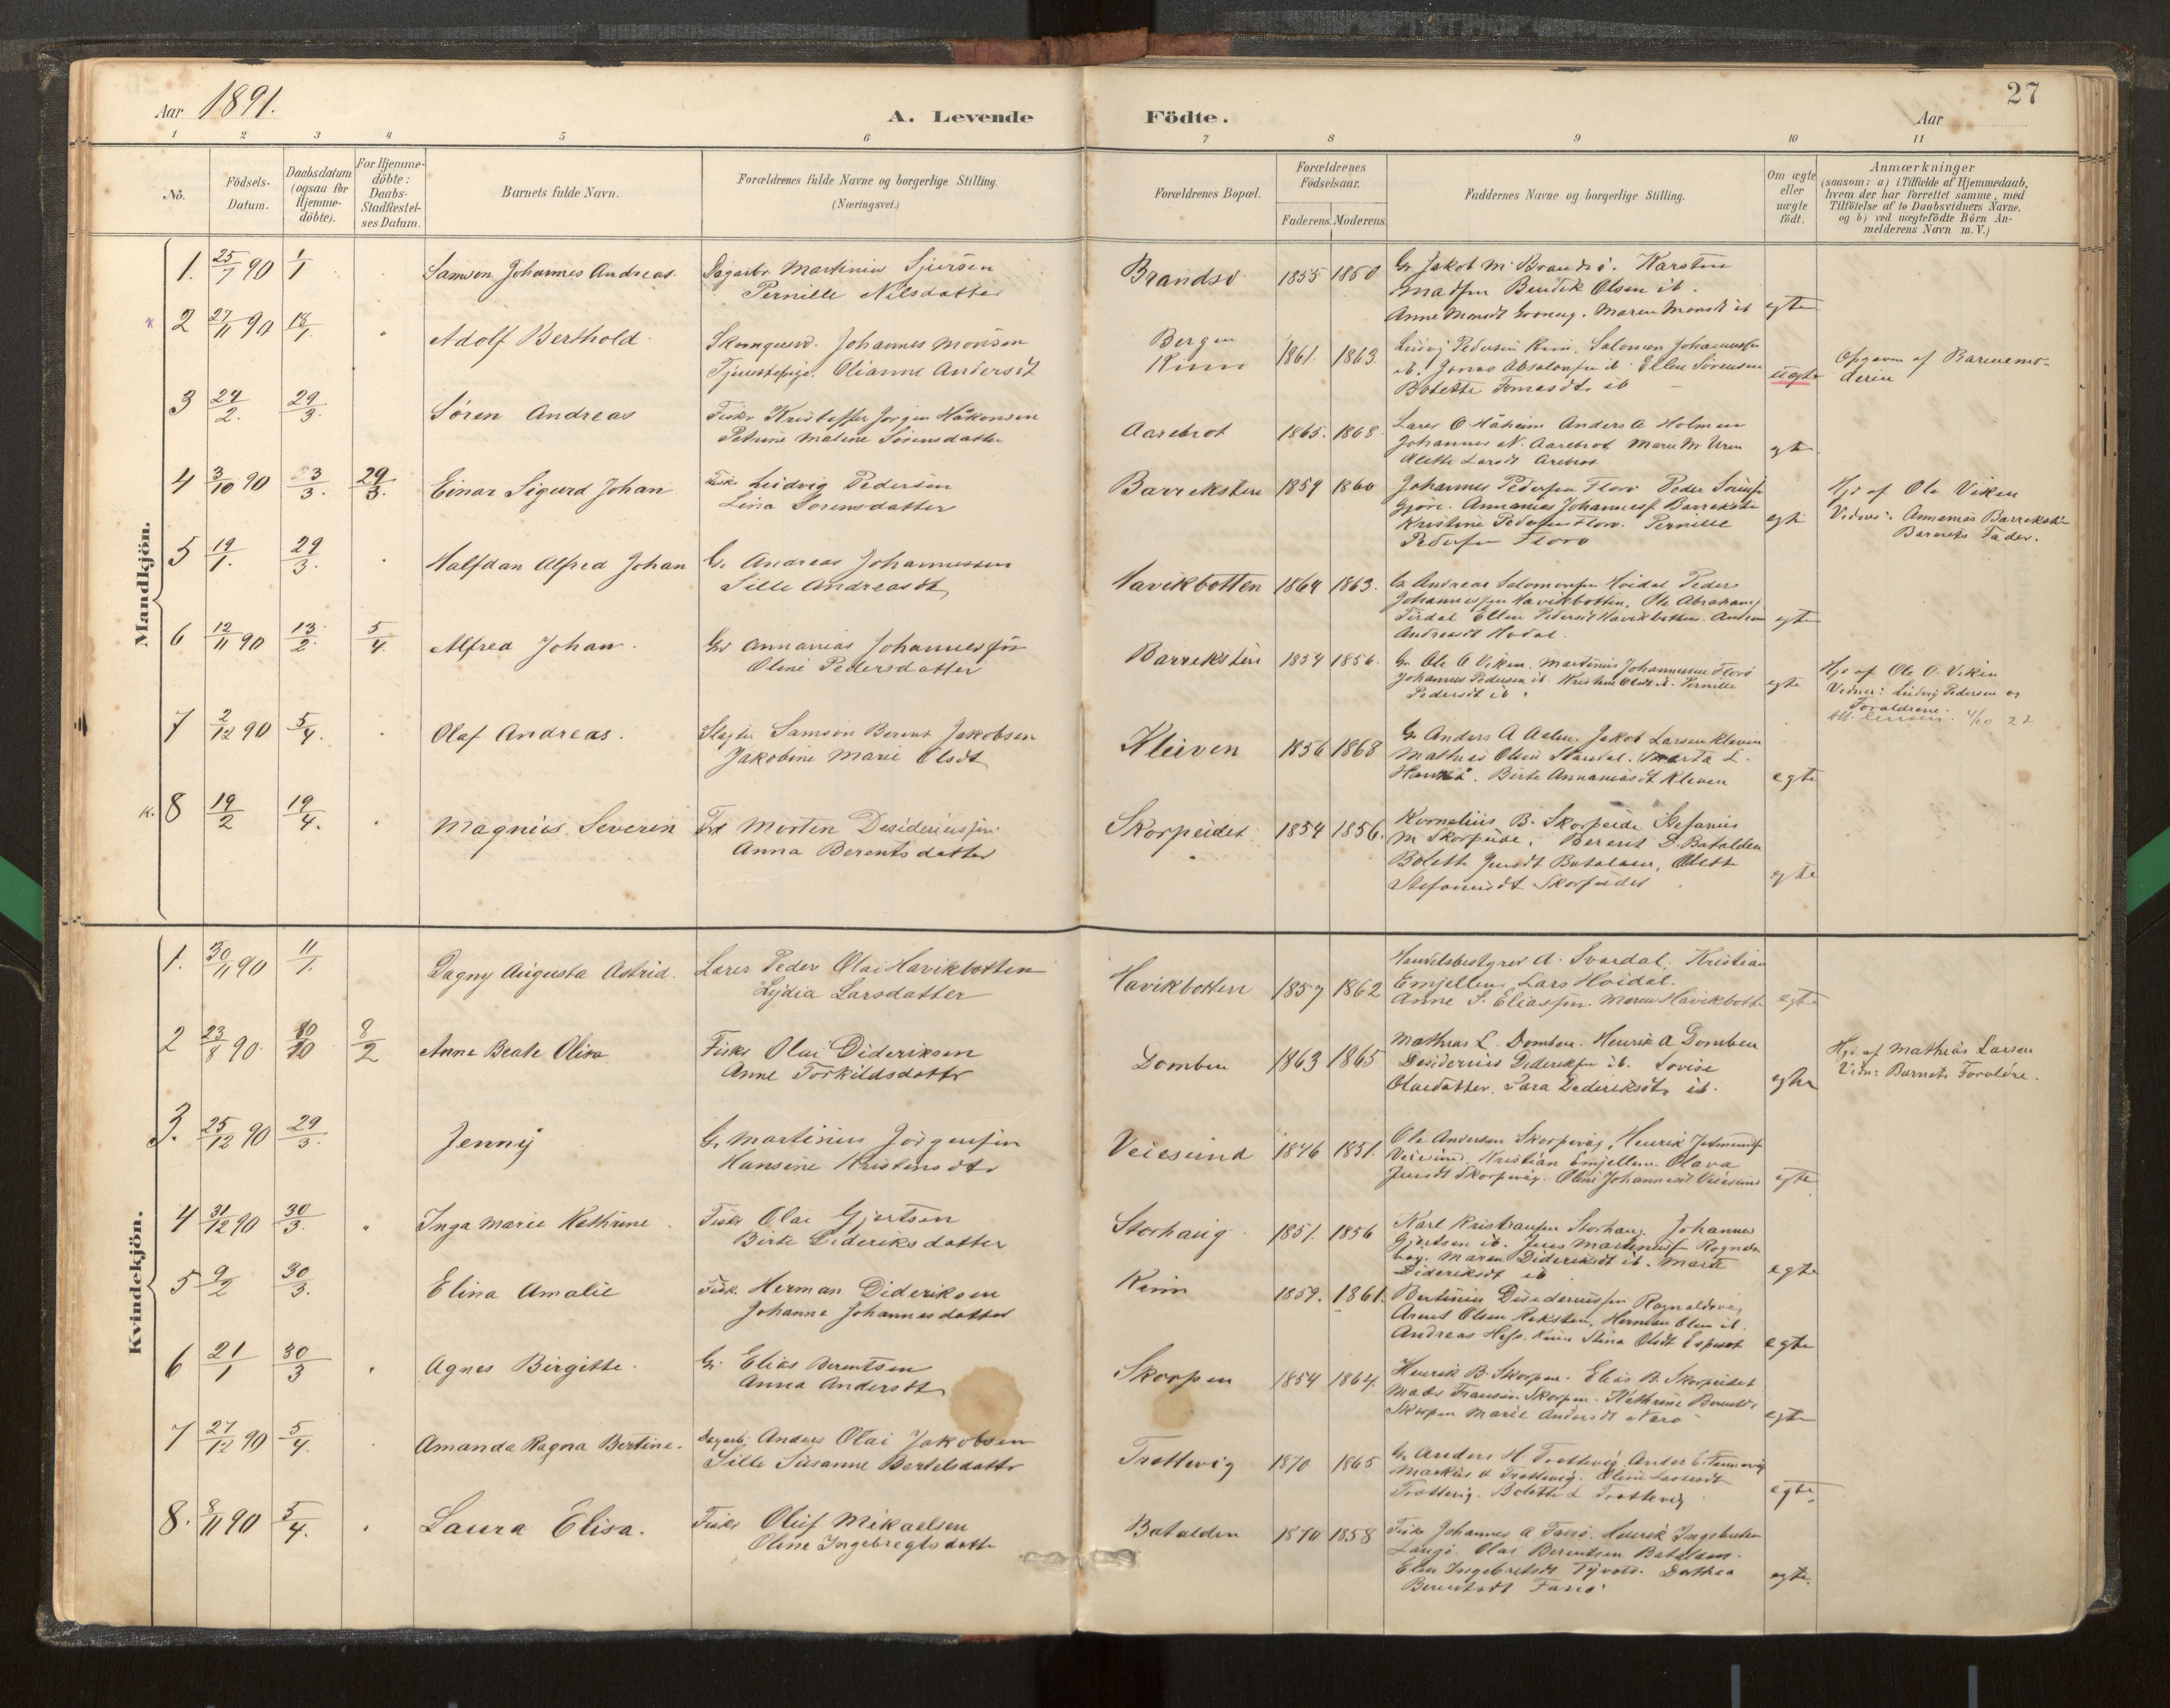 27
Aar 1891.
A. Levende Födte.
Aar
1 2 3 4 5 6 7 8 9 10 11
No.
Födsels-
Datum.
Daabsdatum
(ogsaa for
Hjemme-
döbte).
For Hjemme-
döbte:
Daabs-
Stadfæstel-
ses Datum.
Barnets fulde Navn.
Forældrenes fulde Navne og borgerlige Stilling.
(Næringsvei.)
Forældrenes Bopæl.
Forældrenes
Födselsaar.
Faderens. Moderens.
Faddernes Navne og borgerlige Stilling.
Om ægte
eller
uægte
födt.
Anmærkninger
(saasom: a) i Tilfælde af Hjemmedaab,
hvem der har forrettet samme, med
Tilföielse af to Daabsvidners Navne,
og b) ved uægtefödte Börn An-
melderens Navn m. V.)
Mandkjön.
1. 25/7 90 1/1 Samson Johannes Andreas. Dagarbr. Martinius Sjursen
Pernille Nilsdatter
Brandsö 1855 1850 Gr Jakob M. Brandsö. Karsten
Madsen Bendik Olsen ib.
egte
2 27/11 90 18/1 Adolf Berthold Johannes Monsen
Tjenestepige. Olianne Andersdt
Bergen
Kinn
1861. 1863 Ludvig Pedersen Kinn. Salomon Johannessen
ib. Jonas Absalonsen ib. Ellen Sörensen
Bolette Tomasdt. ib
uægte
Opgaven af Barnemo-
deren
3 24/2. 29/3. Sören Andreas Fiskr Kristoffer Jörgen Håkonsen
Petrine Malene Sörensdatter
Aarebrot 1865. 1868. Lars O Håheim Anders A Holmen
Johannes N. Aarebrot Marie M. Uren
Alette Larsdt Arebrot
gte
4 3/10 90 3/3. 29/3. Einar Sigurd Johan Fiskr Ludvig Pedersen
Lina Sorensdatter
Barrekstein 1859 1860 Johannes Pedersen Florö Peder
Annanias Johannesen Barrekstein
Kristine Pedersen Florö. Pernille
Pedersen Florö
egte
Hjd af Ole Viken
Vidner: Annanias Barrekstein
Barnets Fader.
5 19/1. 29/3. Halfdan Alfred Johan G. Andreas Johannessen
Sille Andreasdt
Havikbotten 1864 1863. Gr Andreas Salomonsen Hoidal Peder
Johannessen Havikbotten, Ole Abrahams
Tirdal Ellen Pedersdt Havikbotten.
Andreasdt Hodal.
egte
6 12/11 90 13/2. 5/4. Alfred Johan. Gr Annanias Johannessen
Oline Pedersdatter
Barrekstein 1854 1856. Gr Ole O Viken. Martinus Johannessen Florö
Johannes Pedersen ib. Kristine Olsdt ib. Pernille
Pedersdt ib.
egte
Hjd af Ole O. Viken
Vidner: Ludvig Pedersen og
Foraldrene.
7 2/12 90 5/4. Olaf Andreas. Samson Berent Jakobsen
Jakobine Marie Olsdt
Kleiven 1856 1868 Gr Anders A Aalen. Jakob Larsen Kleven
Mathias Olsen Standal. Marta L.
Birte Annaniasdt Kleven
egte
8 19/2 19/4. Magnus Severin Morten Desideriussen
Anna Berentsdatter
Skorpeidet 1854 1856. Kornelius B. Skorpeide Stefanus
M Skorpeide. Berent D. Batalden
Bolette Jensdt Batalden, Olette
Stefanusdt Skorpeidet
egte
Kvindekjön.
1. 30/11 90 11/1. Dagny Augusta Astrid. Larer Peder Olai Havikbotten
Lydia Larsdatter
Havikbotten 1857 1862 Handelsbestyrer A. Svardal, Kristian
Emjellen Lars Hoidal.
Anne S. Eliassen. Maren Havikbotten
egte
2 23/8 90. 8/2 Anne Beate Olisa Fiskr Olai Dideriksen
Anne Torkildsdattr
Domben 1863 1865 Mathias L. Domben. Henrik A Domben
Desiderius Dideriksen ib. Lovise
Olaidatter. Sara Dederiksdt ib.
egte
Hjd af Mathias Larsen
Vidn: Barnets Foraldre.
3. 25/12 90 29/3. Jenny G. Martinus Jörgensen
Hansine Kristensdtr
Veiesund 1846 1851. Ole Andersen Skorpevåg. Henrik
Veiesund. Kristian Emjellen. Olava
Jensdt Skorpevåg. Oline Johannesdt Veiesund
egte
4 31/12 90 30/3. Inga Marie Kathrine. Fiskr Olai Gjertsen
Birte Dideriksdatter
Storhaug 1851. 1856 Karl Kristiansen Storhaug. Johannes
Gjertsen ib. Jens Martinussen
Maren Dideriksdt ib. Marte
Dideriksdt ib
egte
5 9/2 30/3. Elina Amalie Fiskr Herman Dideriksen
Johanne Johannesdatter
Kinn 1859. 1861. Bertinius Desideriussen Ragnaldsvåg
Olsen Reksten, Herman Olsen ib.
Andreas Kinn Stina Olsdt Espeset
egte
6 21/1 30/3 Agnes Birgitte. Gr. Elias Berentsen
Anna Andersdt
Skorpen 1854 1864. Henrik B. Skorpen. Elias B. Skorpeidet
Mads Fransen Skorpen. Kathrine Berentsdt
Skorpen Marie Andersdt
egte
7 27/12 90 5/4. Amanda Ragna Bertine. Dagarb. Anders Olai Jakobsen
Sille Susanne Bertelsdattr
Trottevig 1870 1865 Gr. Anders H. Trottevig Anders E.
Markus A Trottevig.
Trottevig. Bolette L Trottevig
egte.
8. 8/11 90 5/4. Laura Elisa. Fiskr Oluf Mikaelsen
Oline Ingebregtsdattr
Batalden 1870 1858 Fiskr Johannes A Faeö. Henrik Ingebretsen
Langö. Olai Berentsen Batalden.
Elen Ingebretsdt Dorthea
Berentsdt
egte.